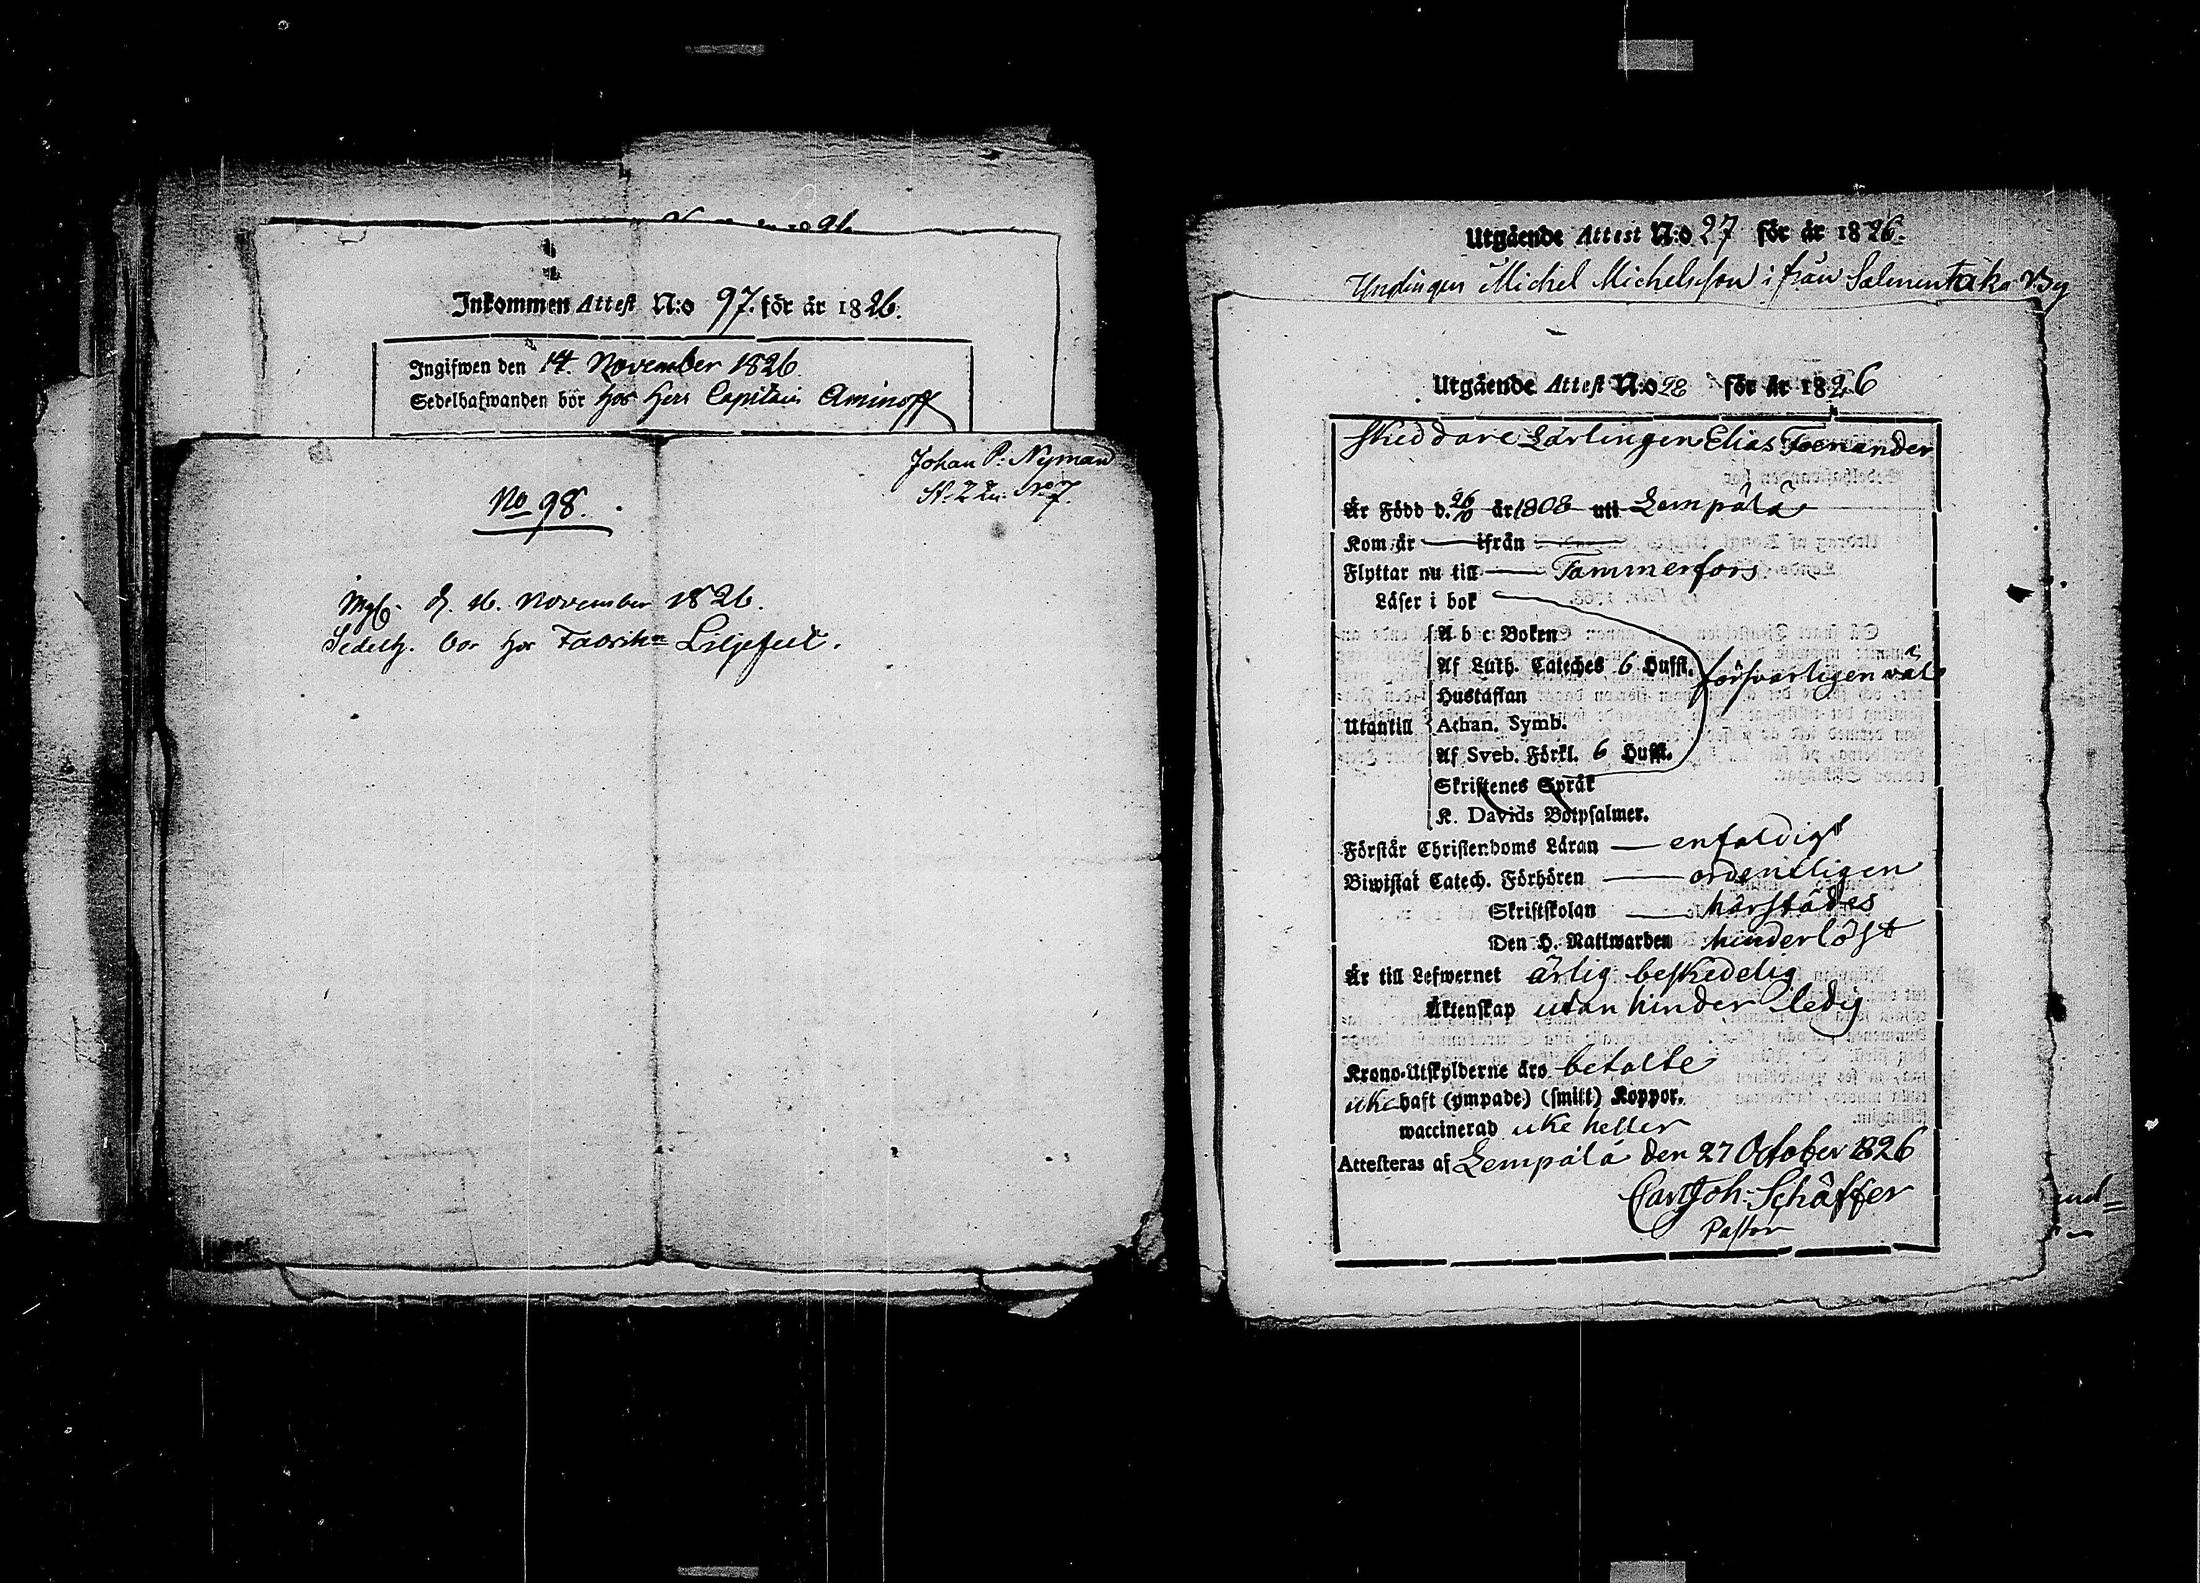 Inkommen Attest N:o 97. för år 1826.
Ingifwen den 14. November 1826.
Sedelhafwanden bor hos Herr Capitain Aminoff
Johan P: Nyman
No 7.
No 98.
Ingf. d. 16. November 1826.
Sedelh. bor hos Fabrik
Utgående Attest N:o 27 för år 1826.
Ynglingen Michel Michelsson ifrån Salmentaka By
Utgående Attest N:o 28 för år 1826
Skeddare Lärlingen Elias Foenander
Är Född d. 26/10 år 1808 uti Lempälä
Kom år — ifrån —
Flyttar nu till — Tammerfors
Läser i bok
A b c Boken
Af Luth. Cateches 6 Hufst. försvarligen väl
Hustaflan
Utantill Athan. Symb.
Af Sveb. Förkl. 6 Hufst.
Skriftenes Språk
K. Davids Botpsalmer.
Förstår Christendoms Läran — enfaldigt
Biwistat Catech. Förhören — ordentligen
Skriftskolan — härstädes
Den H. Nattwarden hinderlöst
Är till Lefwernet ärlig beskedelig
Äktenskap utan hinder ledig
Krono-Utskylderne äro betalte
icke haft (ympade) (smitt) Koppor.
waccinerad icke heller
Attesteras af Lempälä den 27 October 1826
Carl Joh: Schäffer
Pastor